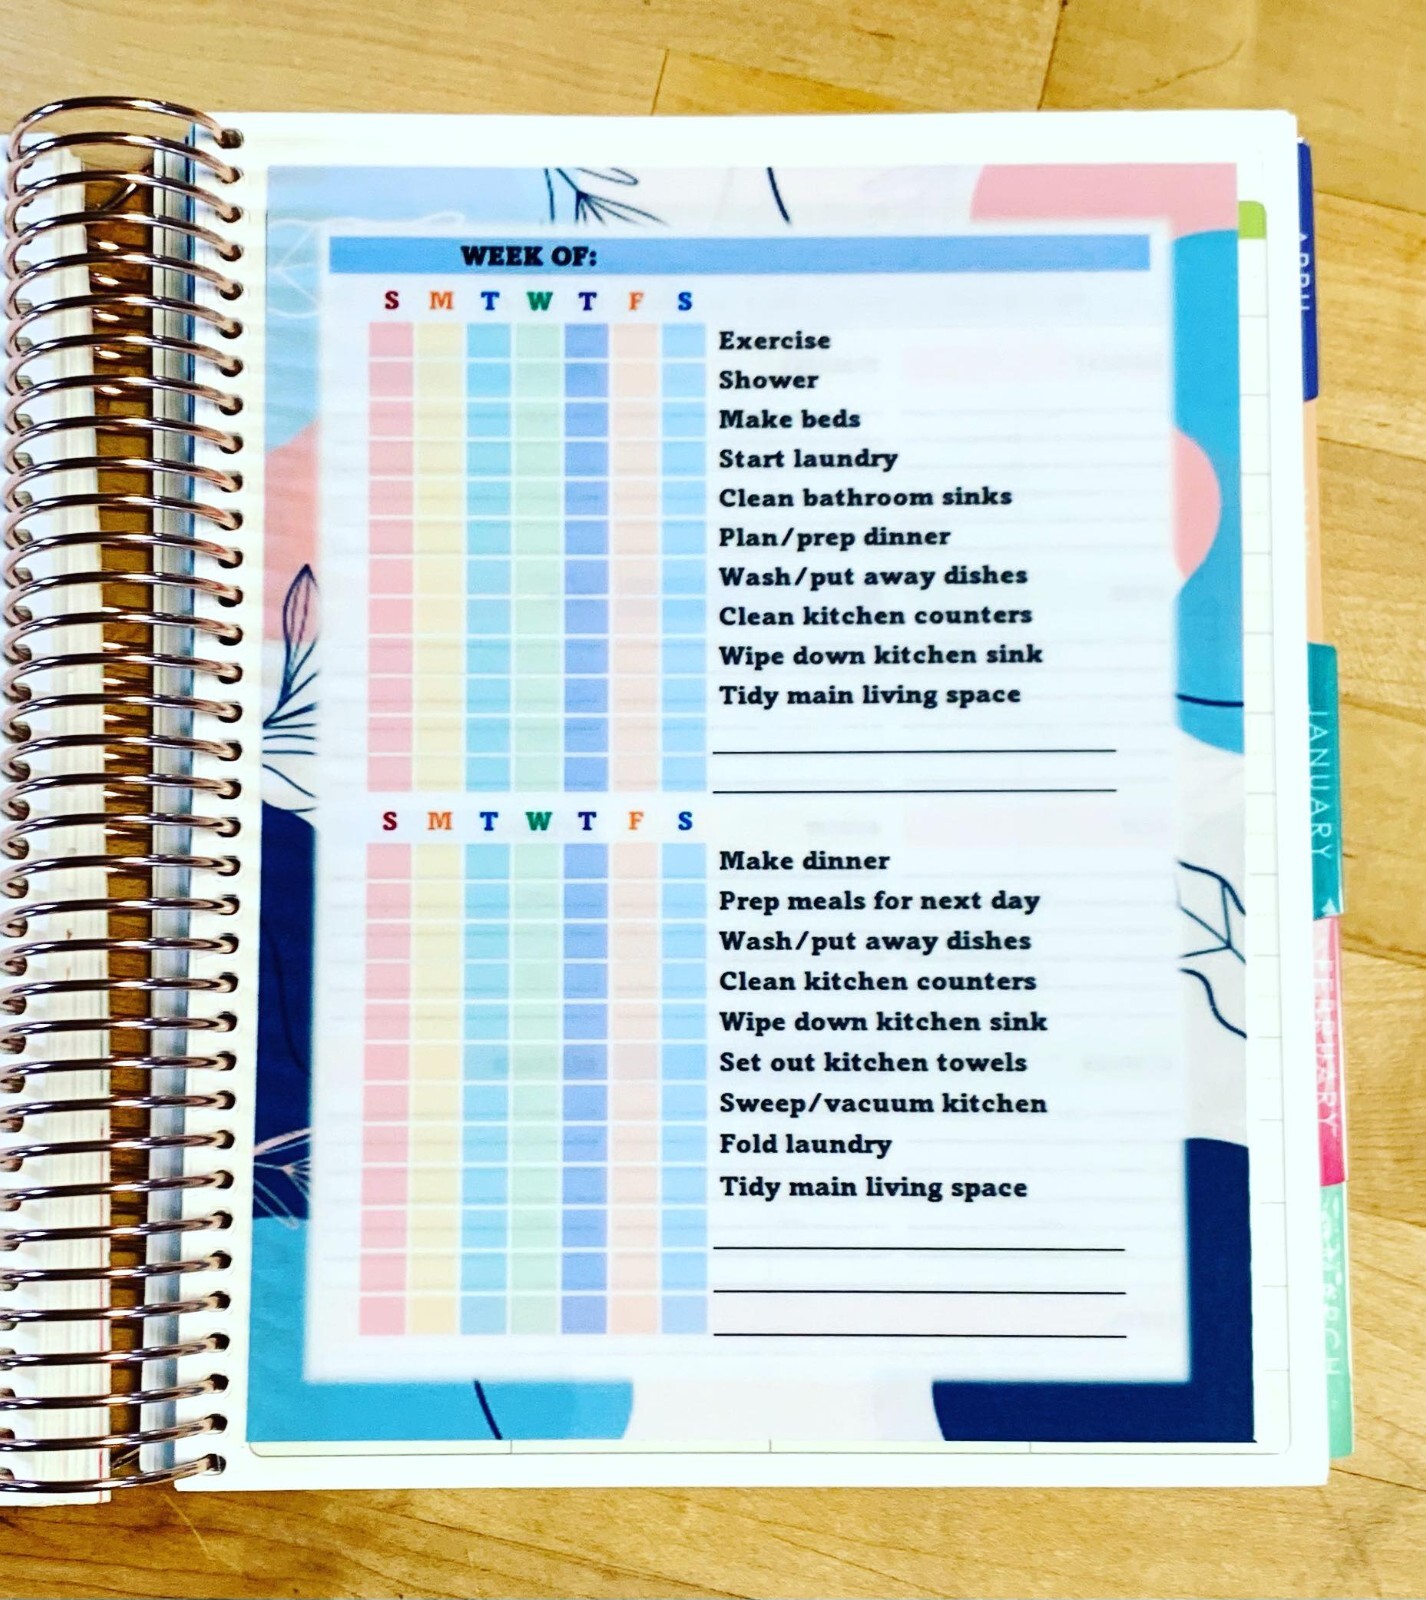 WEEK OF:
S M T W T F S
Exercise
Shower
Make beds
Start laundry
Clean bathroom sinks
Plan/prep dinner
Wash/put away dishes
Clean kitchen counters
Wipe down kitchen sink
Tidy main living space
S M T W T F S
Make dinner
Prep meals for next day
Wash/put away dishes
Clean kitchen counters
Wipe down kitchen sink
Set out kitchen towels
Sweep/vacuum kitchen
Fold laundry
Tidy main living space
JANUARY
FEBRUARY